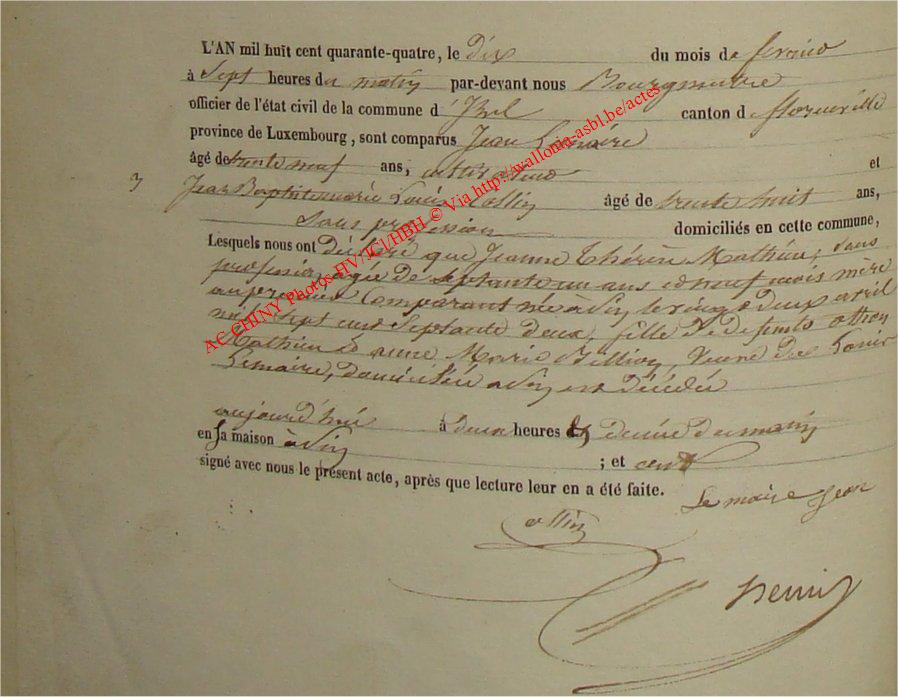 L'AN mil huit cent quarante-quatre, le dix du mois de fevrier
à Sept heures du matin par-devant nous Bourgmestre
officier de l'état civil de la commune d' Izel canton d florenville
province de Luxembourg, sont comparus Jean Lemaire
âgé de trente neuf ans, cultivateur et
3 Jean Baptiste marie Louis Collin âgé de trente huit ans,
Sans profession domiciliés en cette commune,
Lesquels nous ont déclaré que Jeanne Thérèse Mathieu, Sans
profession agée de Septante un ans et neuf mois mère
du premier Comparant née à le vingt deux avril
mil Sept cent Septante deux, fille de defunts
Mathieu & Marie veuve de Louis
Lemaire, domiciliée est décédée
aujourd'hui à deux heures et demie du matin
en Sa maison à ; et ont
signé avec nous le présent acte, après que lecture leur en a été faite.
Lemaire Jean
Collin
AC CHINY Photos HV/JCI/HBH © Via http://wallonia-asbl.be/actes